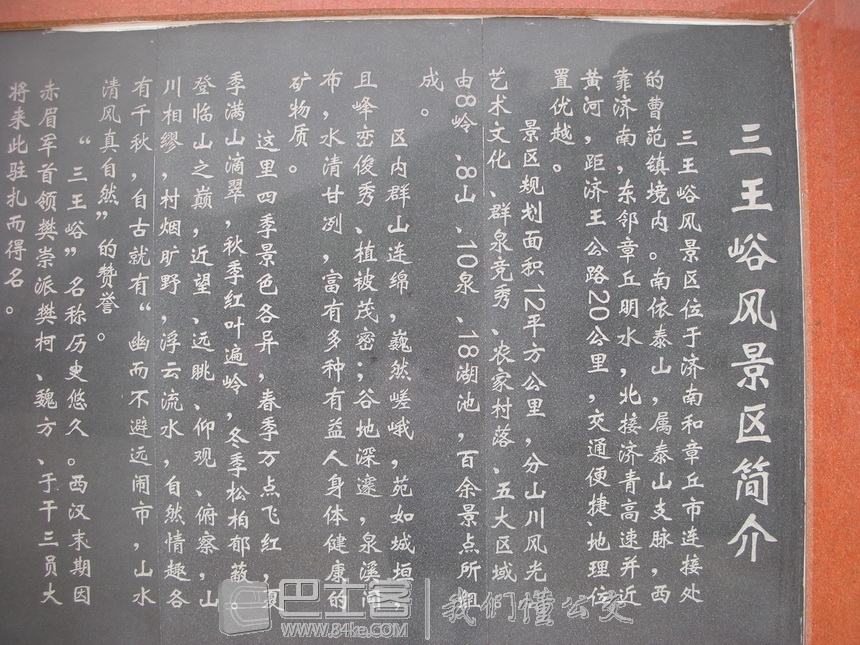 三王峪风景区简介
三王峪风景区位于济南和章丘市连接处
的曹范镇境内。南依泰山,属泰山支脉,西
靠济南,东邻章丘明水,北接济青高速并近
黄河,距济王公路20公里,交通便捷、地理位
置优越。
景区规划面积12平方公里,分山川风光、
艺术文化、群泉竞秀、农家村落、五大区域。
由8岭、8山、10泉、18湖池,百余景点所组
成。
区内群山连绵,巍然嵯峨,苑如城垣,
且峰峦俊秀、植被茂密;谷地深邃,泉溪间
布,水清甘冽,富有多种有益人身体健康的
矿物质。
这里四季景色各异,春季万点飞红,夏
季满山滴翠,秋季红叶遍岭,冬季松柏郁蔽。
登临山之巅,近望、远眺、仰观、俯察,山
川相缪,村烟旷野,浮云流水,自然情趣各
有千秋,自古就有“幽而不避远闹市,山水
清风真自然”的赞誉。
“三王峪”名称历史悠久。西汉末期因
赤眉军首领樊崇派樊柯、魏方、于干三员大
将来此驻扎而得名。
巴士客 我们懂公交
www.84ke.com